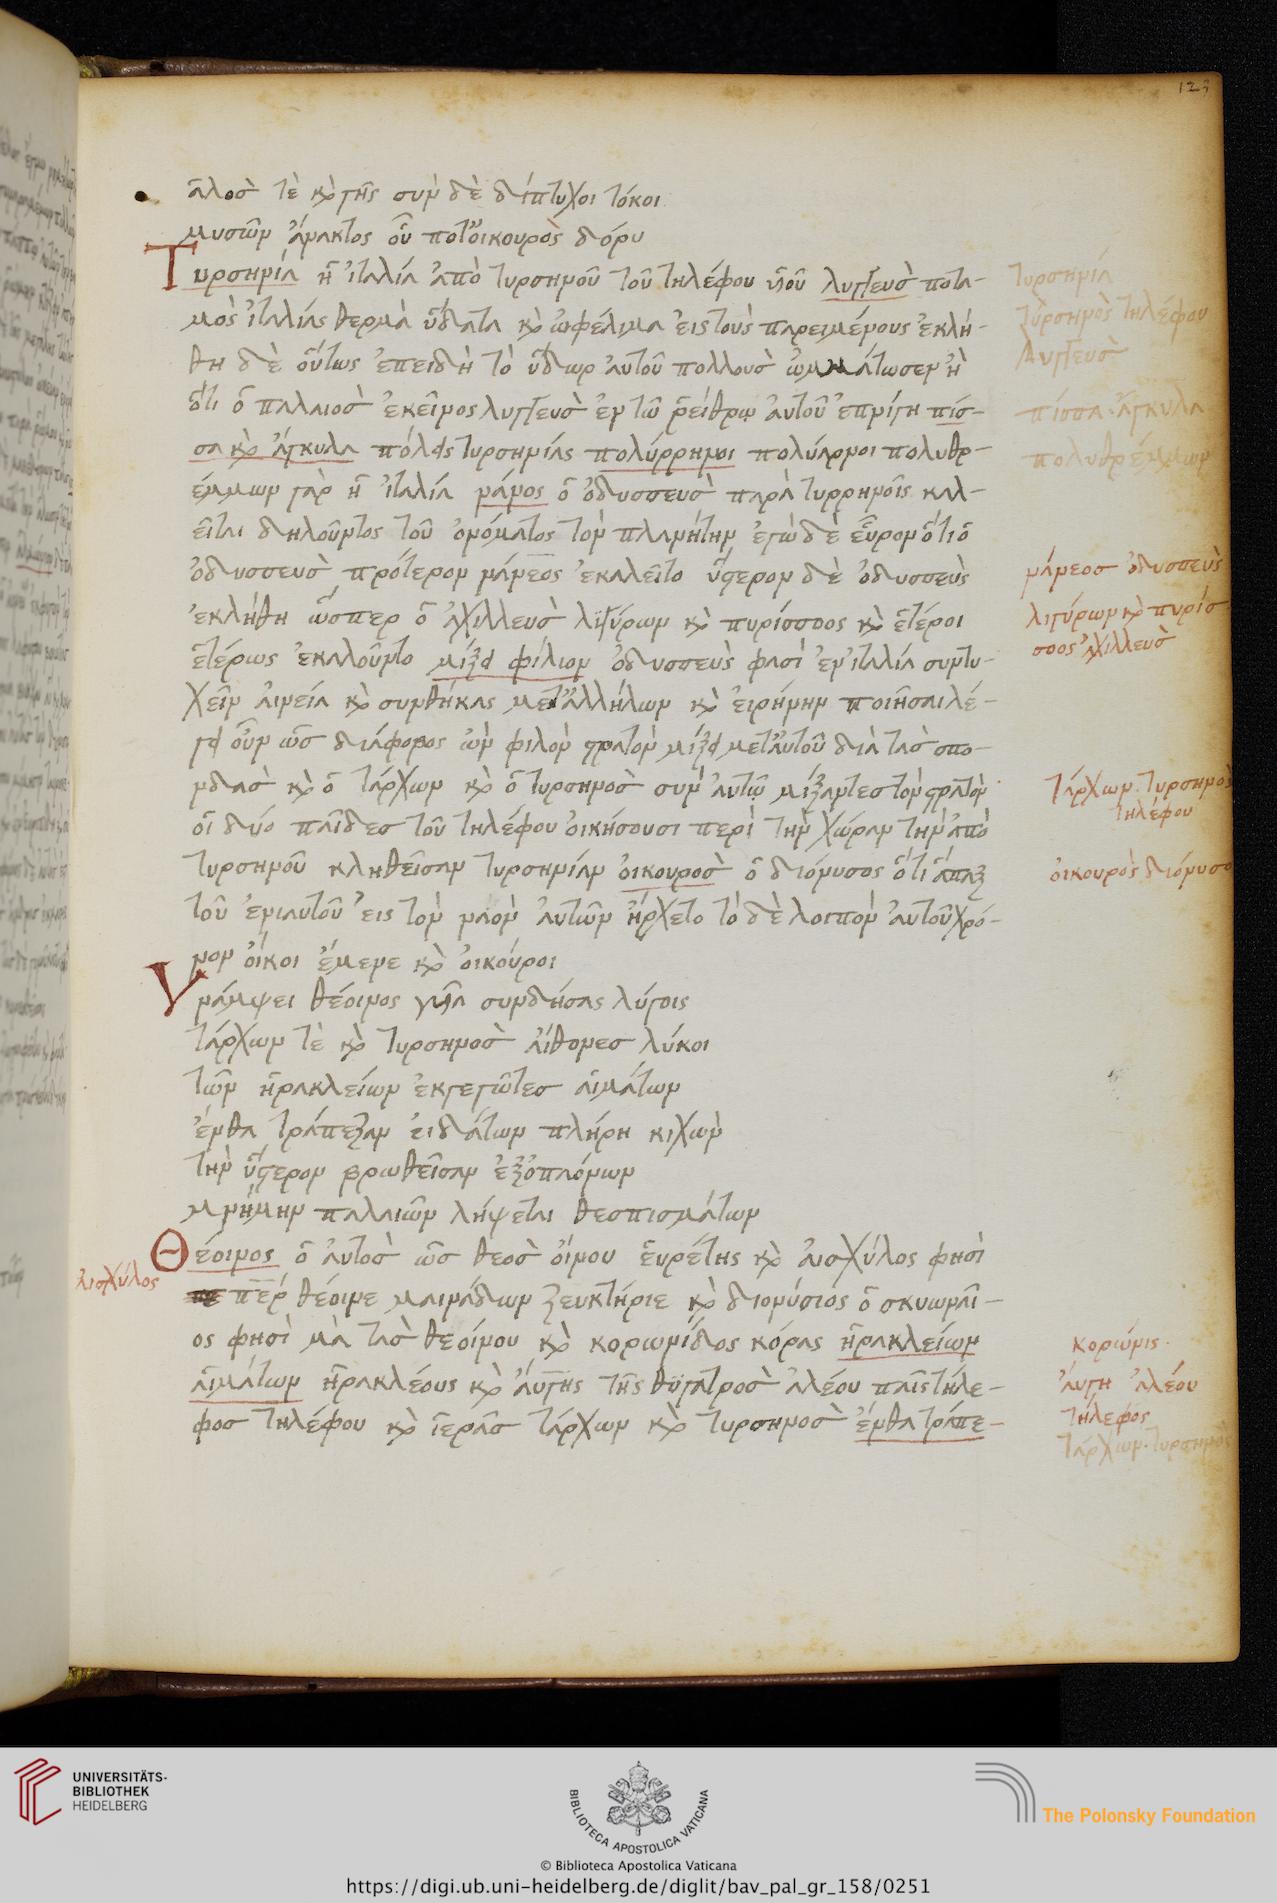 123
ἁλοσ τὲ κὶ γῆς συν δὲ δίπτυχοι τόκοι
μυσῶν ἄνακτος οὗ ποτ' οἰκουρὸς δόρυ
Τυρσηνία ἡ ἰταλία ἀπὸ τυρσηνοῦ τοῦ τηλέφου υἱοῦ λυγγευσ ποτα-
μὸς ἰταλίας θερμὰ ὕδατα κὶ ὠφέλιμα εἰς τοὺς παρειμένους ἐκλή-
θη δὲ οὕτως ἐπειδὴ τὸ ὕδωρ αὐτοῦ πολλοὺσ ὠμμάτωσεν ἢ
ὅτι ὁ παλαιοσ ἐκεῖνος λυγγευσ ἐν τῶ ῥείθρῳ αὐτοῦ ἐπνίγη πίσ-
σα κὶ ἄγκυλα πόλεις τυρσηνίας πολύρρηνοι πολύαρνοι πολυθρ-
έμμων γὰρ ἡ ἰταλία νάνος ὁ ὀδυσσευσ παρὰ τυρρηνοῖς καλ-
εῖται δηλοῦντος τοῦ ὀνόματος τὸν πλανήτην ἐγὼ δὲ εὗρον ὅτι ὁ
ὀδυσσευσ πρότερον νάνεος ἐκαλεῖτο ὕστερον δὲ ὀδυσσεὺς
ἐκλήθη ὥσπερ ὁ ἀχιλλευσ λϊγύρων κὶ πυρίσσοος κὶ ἕτέροι
ἑτέρως ἐκαλοῦντο μίξει φίλιον ὀδυσσεὺς φασὶ ἐν ἰταλία συντυ-
χεῖν αἰνεία κὶ συνθήκας μετ' ἀλλήλων κὶ εἰρήνην ποιῆσαι λέ-
γει οὖν ὡσ διάφορος ὢν φιλον στρατον μίξει μετ' αὐτοῦ διὰ τασ σπο-
νδασ κὶ ὁ τάρχων κὶ ὁ τυρσηνοσ συν αὐτῷ μίξαντεσ τον στρατον
οἱ δύο παῖδεσ τοῦ τηλέφου οἰκήσουσι περὶ την χώραν την ἀπὸ
τυρσηνοῦ κληθεῖσαν τυρσηνίαν οἰκουροσ ὁ διόνυσος ὅτι ἅπαξ
τοῦ ἐνιαυτοῦ εἰς τον ναον αὐτῶν ἤρχετο τὸ δὲ λοιπον αὐτοῦ χρό-
νον οἴκοι ἔμενε κὶ οἰκούροι
Γνάμψει θέοινος γυῖα συνδήσας λύγοις
τάρχων τὲ κὶ τυρσηνοσ αἴθονεσ λύκοι
τῶν ἡρακλείων ἐκγεγῶτεσ αἱμάτων
ἔνθα τράπεζαν εἰδάτων πλήρη κιχων
την ὕστερον βρωθεῖσαν ἐξ ὀπαόνων
μνήμην παλαιῶν λήψεται θεσπισμάτων
Θέοινος ὁ αὐτοσ ὡσ θεοσ οἴνου εὑρέτης κὶ αἰσχύλος φησὶ
περ θέοινε μαινάδων ζευκτήριε κὶ διονύσιος ὁ σκυωναῖ-
ος φησὶ μὰ τασ θεοίνου κὶ κορωνίδος κόρας ἡρακλείων
αἱμάτων ἡρακλέους κὶ αὔγης τῆς θϋγατροσ ἀλέου παῖς τήλε-
φοσ τηλέφου κὶ ἱερᾶσ τάρχων κὶ τυρσηνοσ ἔνθα τράπε-
τυρσηνία
τυρσηνοσ τηλέφου
λυγγευσ
πίσσα. ἄγκυλα
πολυθρέμμων
νάνεοσ ὀδυσσεὺς
λιγύρων κὶ πυρίσ
σοος ἀχιλλευσ
τάρχων. τυρσηνοσ
τηλέφου
οἰκουρὸς διόνυσο
αἰσχύλος
κορώνις.
αὔγη ἀλέου
τήλεφος
τάρχων. τυρσηνος
UNIVERSITÄTS-
BIBLIOTHEK
HEIDELBERG
BIBLIOTECA APOSTOLICA VATICANA
The Polonsky Foundation
© Biblioteca Apostolica Vaticana
https://digi.ub.uni-heidelberg.de/diglit/bav_pal_gr_158/0251